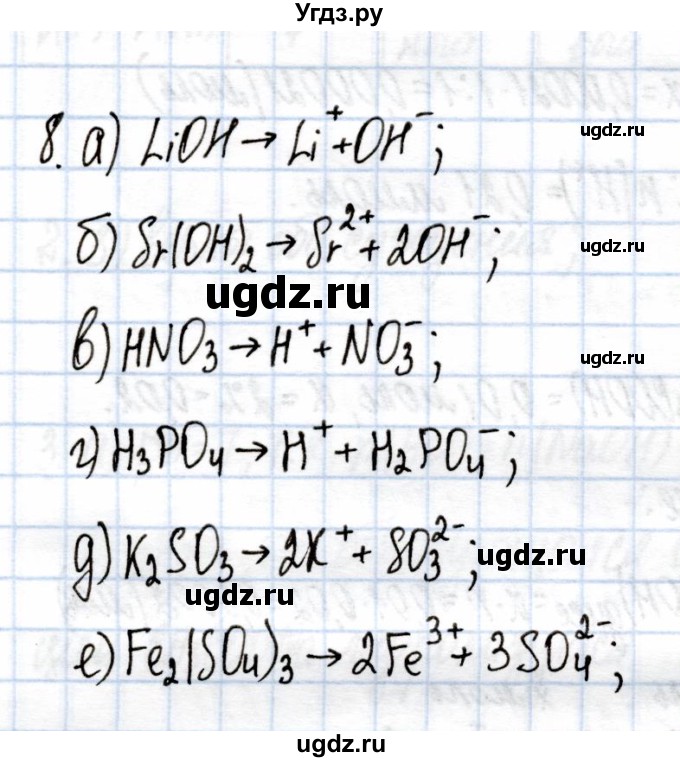 Угдз.ру
8. а) LiOH → Li⁺ + OH⁻; ugdz.ru
б) Sr(OH)₂ → Sr²⁺ + 2OH⁻; ugdz.ru
ugdz.ru
в) HNO₃ → H⁺ + NO₃⁻; ugdz.ru
г) H₃PO₄ → H⁺ + H₂PO₄⁻;
д) K₂SO₃ → 2K⁺ + SO₃²⁻; ugdz.ru
ugdz.ru
е) Fe₂(SO₄)₃ → 2Fe³⁺ + 3SO₄²⁻;
ugdz.ru